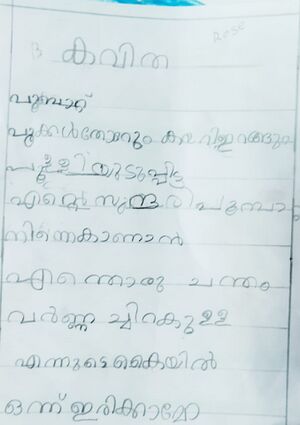 Rose
B കവിത
പൂമ്പാറ്റ
പൂക്കൾതോറും
പുള്ളിയുടുപ്പിട്ട
എന്റെ സുന്ദരി പൂമ്പാ
നിന്നെകാണാൻ
എന്തൊരു ചന്തം
വർണ്ണ ച്ചിറകുള്ള
എന്നുടെ കൈയിൽ
ഒന്ന് ഇരിക്കാമോ